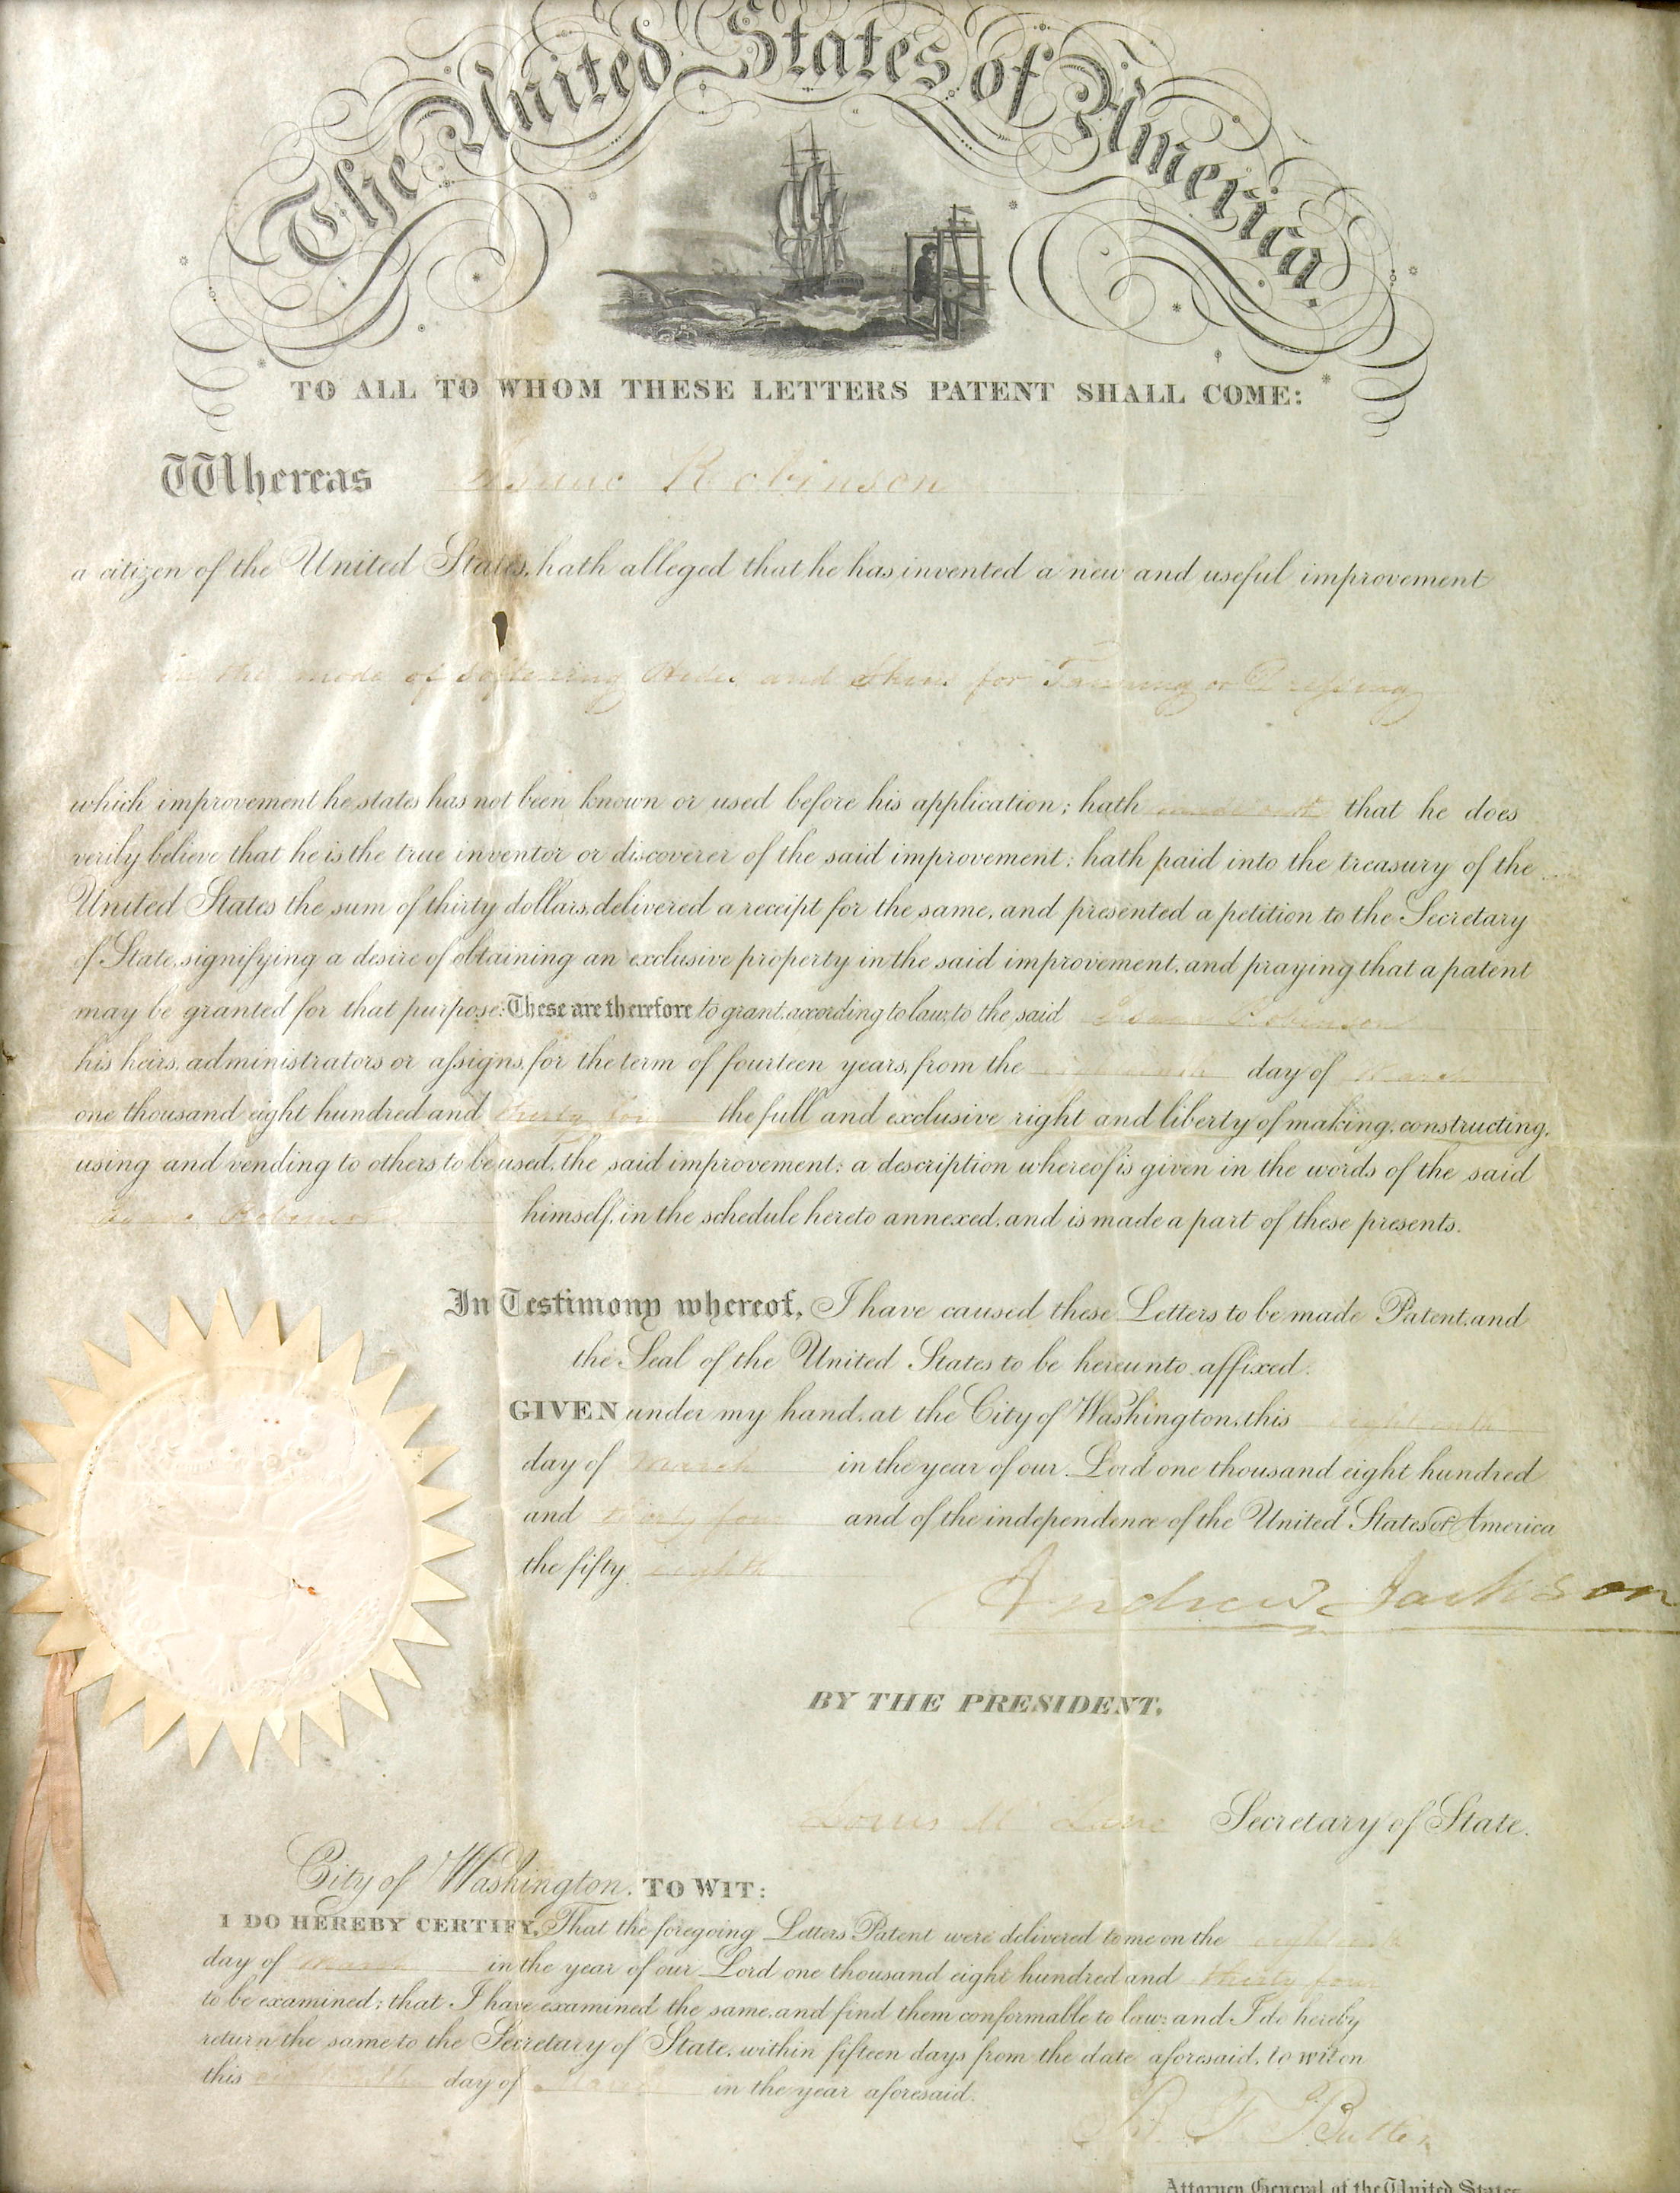 The United States of America
TO ALL TO WHOM THESE LETTERS PATENT SHALL COME:
Whereas Isaac Robinson
a citizen of the United States, hath alleged that he has invented a new and useful improvement
in the mode of Softening Hides and Skins for Tanning or Dressing
which improvement he states has not been known or used before his application; hath made oath that he does
verily believe that he is the true inventor or discoverer of the said improvement; hath paid into the treasury of the
United States the sum of thirty dollars, delivered a receipt for the same, and presented a petition to the Secretary
of State, signifying a desire of obtaining an exclusive property in the said improvement, and praying that a patent
may be granted for that purpose: These are therefore to grant, according to law, to the said Isaac Robinson
his heirs, administrators or assigns, for the term of fourteen years, from the eighteenth day of March
one thousand eight hundred and thirty four the full and exclusive right and liberty of making, constructing,
using and vending to others to be used, the said improvement; a description whereof is given in the words of the said
Isaac Robinson himself, in the schedule hereto annexed, and is made a part of these presents.
In Testimony whereof, I have caused these Letters to be made Patent, and
the Seal of the United States to be hereunto affixed.
GIVEN under my hand, at the City of Washington, this eighteenth
day of March in the year of our Lord one thousand eight hundred
and thirty four and of the independence of the United States of America
the fifty eighth
Andrew Jackson
BY THE PRESIDENT,
Louis McLane Secretary of State.
City of Washington, TO WIT:
I DO HEREBY CERTIFY, That the foregoing Letters Patent were delivered to me on the eighteenth
day of March in the year of our Lord one thousand eight hundred and thirty four
to be examined; that I have examined the same, and find them conformable to law; and I do hereby
return the same to the Secretary of State, within fifteen days from the date aforesaid, to wit on
this eighteenth day of March in the year aforesaid.
B. F. Butler
Attorney General of the United States